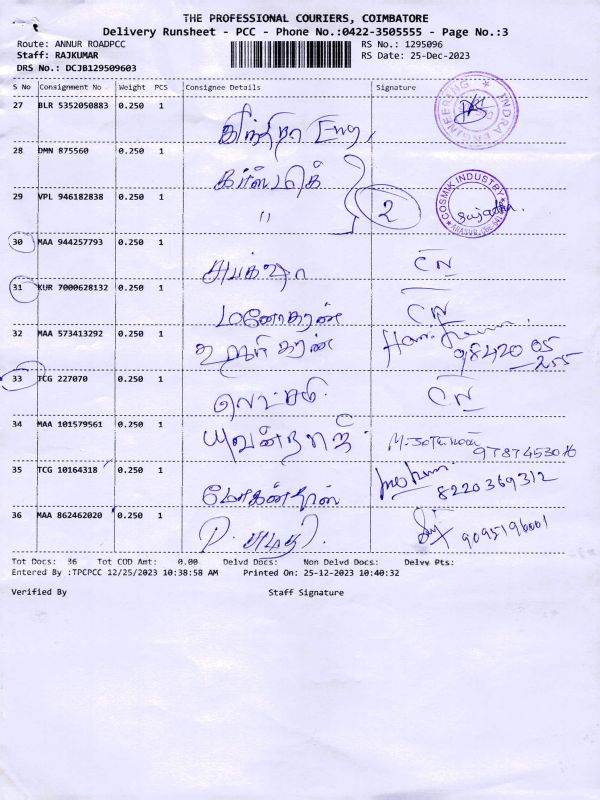 THE PROFESSIONAL COURIERS, COIMBATORE
Delivery Runsheet - PCC - Phone No.:0422-3505555 - Page No.:3
Route: ANNUR ROADPCC RS No.: 1295096
Staff: RAJKUMAR RS Date: 25-Dec-2023
DRS No.: DCJB129509603
S No Consignment No Weight PCS Consignee Details Signature
27 BLR 5352050883 0.250 1 இந்திரா Eng,
INDRA ENGINEERING
28 DMN 875560 0.250 1
29 VPL 946182838 0.250 1 " 2
COSMIK INDUSTRY
Sujatha
30 MAA 944257793 0.250 1 CN
31 KUR 7000628132 0.250 1 மனோகரன் CN
32 MAA 573413292 0.250 1
98420 05
255
33 TCG 227070 0.250 1 CN
34 MAA 101579561 0.250 1 யுவன்ராஜ்
9787453016
35 TCG 10164318 0.250 1 மோகன்தாஸ்
8220369312
36 MAA 862462020 0.250 1
9095196001
Tot Docs: 36 Tot COD Amt: 0.00 Delvd Docs: Non Delvd Docs: Delvy Pts:
Entered By :TPCPCC 12/25/2023 10:38:58 AM Printed On: 25-12-2023 10:40:32
Verified By Staff Signature